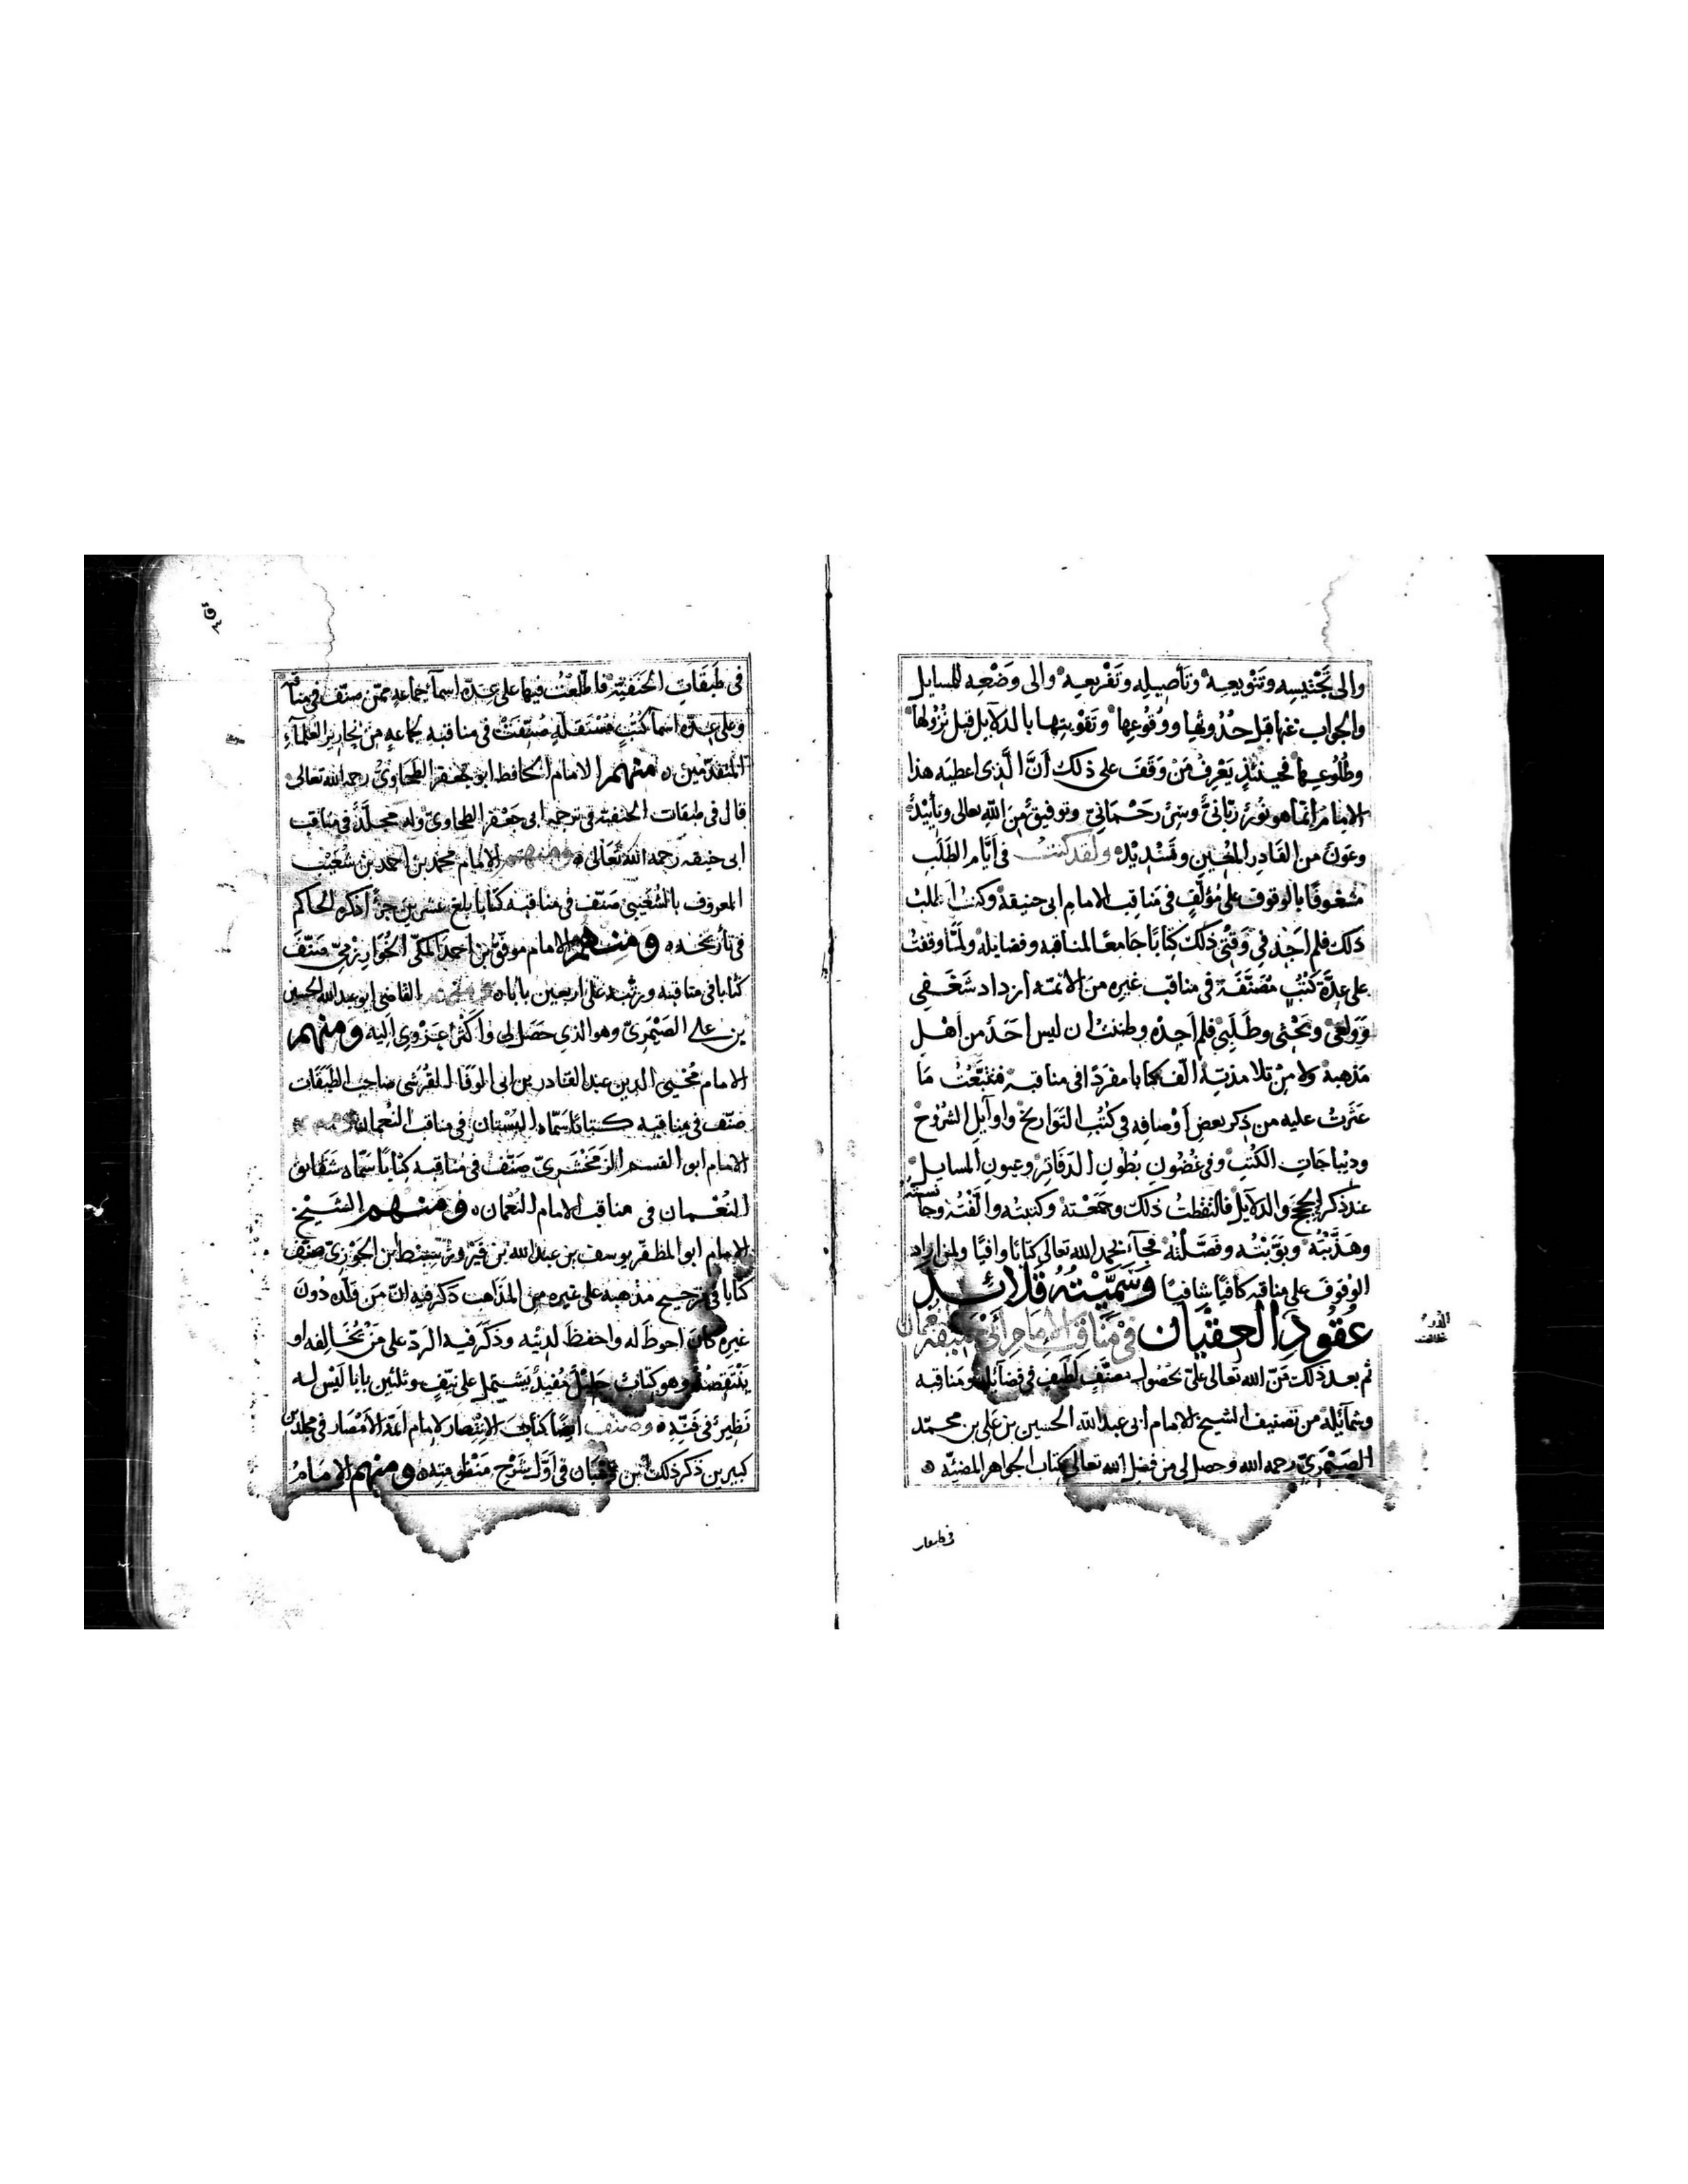 والى تَجْنيسِه وتَنْويعِه وتَأصيلِه وتَفْريعِه والى وَضْعِه للمسايل
والجواب عنها قبل حُدُوثها ووُقُوعِها وتَقْويتها بالدلايل قبل نُزُولها
وطُلُوعِها فحينئذٍ يَعْرِفُ مَنْ وَقَفَ على ذلك أنَّ الّذى اعطيَه هذا
الامامُ انّما هو نُورٌ رَبّانىٌّ وسِرٌّ رَحْمانِىٌّ وتوفيقٌ مِنَ اللهِ تعالى وتأييدٌ
وعَونٌ من القَادِر المُعينِ وتَسْديدٌ ولَقد كنتُ فى أيّام الطَلَبِ
مَشْغوفًا بالوقوف على مُؤلَّفٍ فى مَناقِب الامامِ ابى حنيفة وكنتُ اطلبُ
ذلك فلم اَجدْ فى وَقْتى ذلك كِتابًا جَامعًا لمناقبه وفضايله ولمّا وقفتُ
على عِدّةِ كُتُبٍ مُصَنَّفَةٍ فى مناقب غيره منَ الائمّه ازداد شَغَفِى
وَوَلَعى وبَحْثى وطَلَبِى فلم اَجِدْه وظننتُ ان ليس احَدٌ من اهْلِ
مَذهبه ولا مِنْ تلامذتِه الّف كتابا مفرَدًا فى مناقبه فتتبَّعْتُ مَا
عَثَرتُ عليه من ذِكر بعضِ أوْصافِه فى كُتُبِ التَواريخ واوآيلِ الشُرُوح
ودِيْباجَاتِ الكُتُبِ وفى غُضُونِ بُطُونِ الدَفَاتِر وعيونِ المسايل
عند ذكر الحججِ والدلايل فالتقطتُ ذلك وجَمَعْتهُ وكتبتُه والَّفْتُه
وهَذّبْتُه وبَوَّبْتُه وفصّلْتُه فجآءَ بحمد الله تعالى كتابًا وافيًا ولمن اراد
الوُقوفَ على مناقبه كافيًا شافيًا وَسَمَّيْتُهُ قَلائِدَ
عُقُودِ العِقْيَان فىْ مَنَاقِبِ الامَامِ اَبى حَنيفَةَ النُعْمَان
ثم بعد ذلك مَنّ الله تعالى علىّ بحُصُول مصنَّفٍ لَطيفٍ فى فضآئِله ومَناقبه
وشمآئِله من تصنيف الشيخ الامام ابى عبد الله الحسين بن على بن محمّد
الصَيْمَرىّ رحمه الله وحصل لى من فضل الله تعالى كتاب الجواهر المضيّه
فى طبقات
فى طَبَقَاتِ الحَنَفيّة فاطَّلَعْتُ فيها على عِدّة اسمآءِ جماعةٍ ممّن صنّف فى مناقبه
وعلى عِدّة اسمآ كُتُبٍ مُسْتَقلّةٍ صُنّفَتْ فى مناقبه لجماعةٍ من نحارير العُلمآءِ
المتقدّمين منهم الامام الحافظ ابو جعفر الطحاوىّ رحمه الله تعالى
قال فى طبقات الحنفيّة فى ترجمة ابى جَعْفر الطحاوىّ وله مجلَّدٌ فى مناقب
ابى حنيفه رحمه الله تَعَالى ومنهم الامام محمد بن احمد بن شُعَيْب
المعروف بالشُعَيبىّ صَنّف فى مناقبه كتابًا بلغ عشرين جزأً ذكره الحاكم
فى تأريخه ومنهم الامام موفق بن احمد المكّى الخُوارِزْمىّ صَنّفَ
كتابا فى مناقبه ورتّبه على اربعين بابا ومنهم القاضى ابو عبد الله الحسين
بن على الصَيْمَرىّ وهو الذي حَصَل لى واكْثَرُ عَزْوِى اليه وَمنهم
الامام مُحْيى الدين عبد القادر بن ابى الوَفَا القُرَشى صاحب الطَبَقات
صنّف فى مناقبه كتابًا سَمّاه البُسْتان فى مناقب النُعْمان ومنهم
الامام ابو القسم الزمَخْشَرىّ صَنّف فى مناقبه كِتابًا سَمّاه شَقَائق
النُعْمان فى مناقب الامام النُعْمان ومنهم الشيخ
الامام ابو المظفّر يوسف بن عبد الله سِبْط ابن الجَوْزىّ صنّف
كتابا فى ترجيح مذهبه على غيره من المذاهب ذكر فيه انّ مَن قَلّده دُونَ
غيره كانَ احوطَ له واحفظَ لدينه وذكَرَ فيه الرَدّ على مَنْ يُخَالِفه او
يَنْتَقِصُه وهو كتابٌ جليلٌ مُفيدٌ يَشتمل على نيّفٍ وثلثين بابا لَيْس له
نَظِيرٌ فى فَنّه وصنّف ايضًا كتابَ الانتِصار لامام ائمّة الامْصار فى مجلدين
كبيرين ذكر ذلك فى اوّل شرح مَنْظومته ومنهم الامامُ